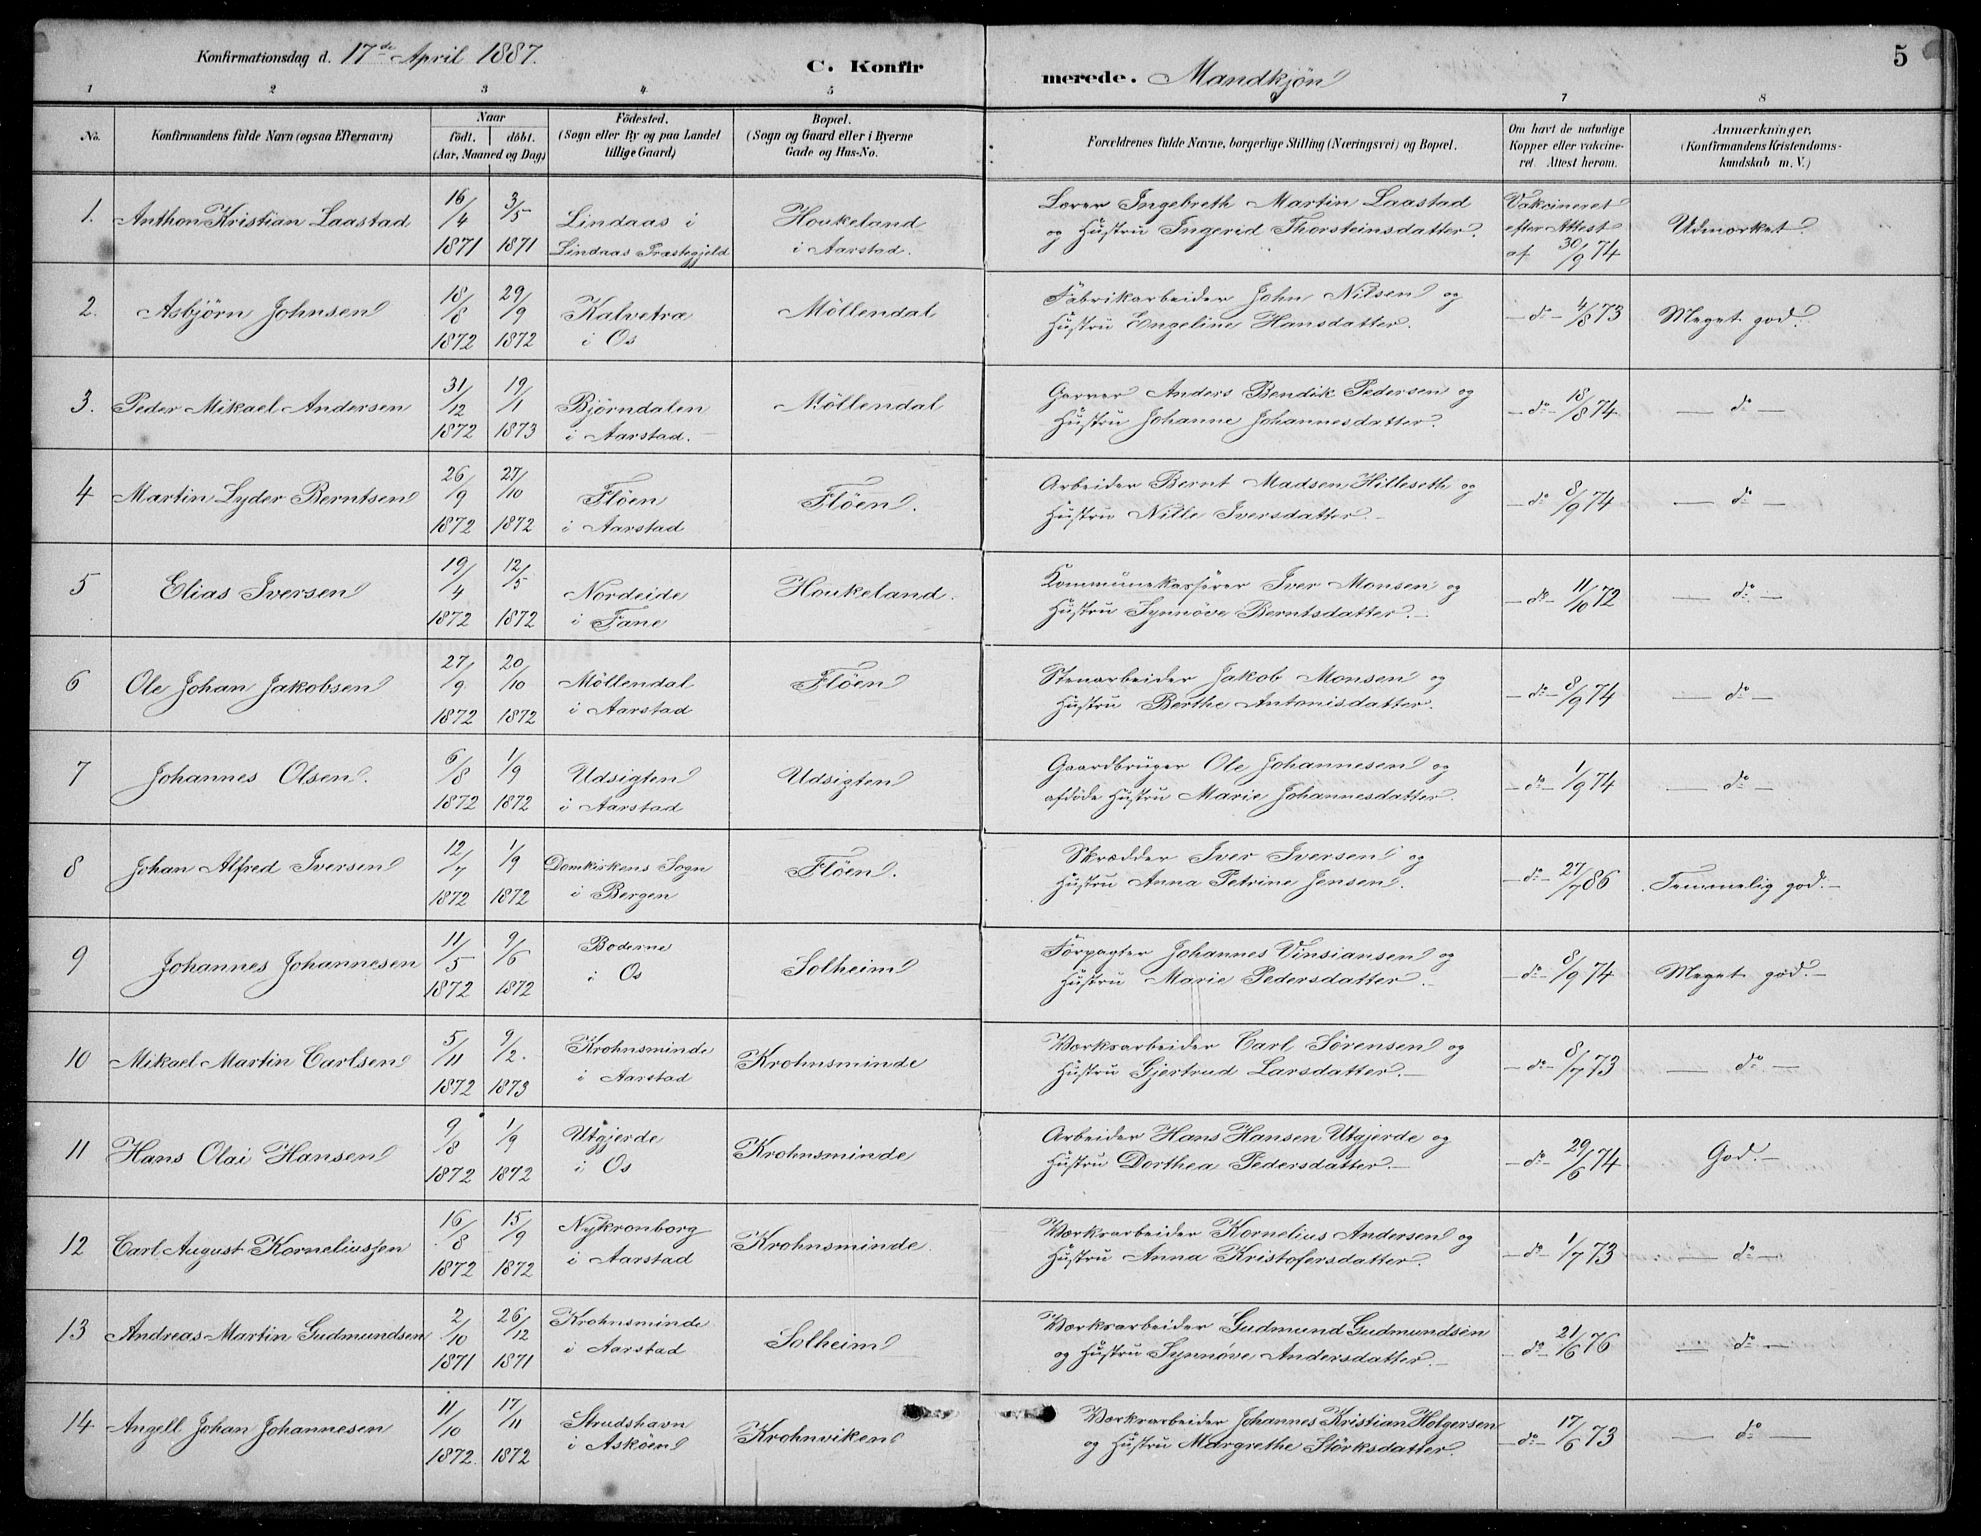 Konfirmationsdag d. 17de April 1887.
C. Konfirmerede. Mandkjøn
5
1 2 3 4 5 7 8
No.
Konfirmandens fulde Navn (ogsaa Efternavn)
Naar
født. døbt.
(Aar, Maaned og Dag)
Fødested.
(Sogn eller By og paa Landet
tillige Gaard)
Bopæl.
(Sogn og Gaard eller i Byerne
Gade og Hus-No.
Forældrenes fulde Navne, borgerlige Stilling (Næringsvei) og Bopæl.
Om havt de naturlige
Kopper eller vakcine-
ret. Attest herom.
Anmærkninger,
(Konfirmandens Kristendoms-
kundskab m. V.)
1. Anthon Kristian Laastad 16/4 1871 3/5 1871 Lindaas i
Lindaas Præstegjeld
Houkeland
i Aarstad.
Lærer Ingebreth Martin Laastad
og Hustru Ingerid Thorsteinsdatter.
Vakcineret
efter Attest
af 30/9 74
Udmærket.
2. Asbjørn Johnsen 18/8 1872 29/9 1872 Kalvetræ
i Os
Möllendal
Fabrikarbeider John Nilsen og
Hustru Engeline Hansdatter.
-do- 4/8 73 Meget god.
3. Peder Mikael Andersen 31/12 1872 19/1 1873 Bjørndalen
i Aarstad.-
Möllendal
Garver Anders Bendik Pedersen og
Hustru Johanne Johannesdatter.
-do- 18/8 74 - do -
4 Martin Lyder Berntsen 26/9 1872 27/10 1872 Flöen
i Aarstad
Flöen.
Arbeider Bernt Madsen Hilleseth og
Hustru Nille Iversdatter.-
-do- 8/9 74 - do -
5 Elias Iversen 19/4 1872 12/5 1872 Nordeide
i Fane
Houkeland.
Kommunekasserer Iver Monsen og
Hustru Synnøve Berntsdatter.-
-do- 11/10 72 - do -
6 Ole Johan Jakobsen 27/9 1872 20/10 1872 Möllendal
i Aarstad
Flöen
Stenarbeider Jakob Monsen og
Hustru Berthe Antonisdatter.
-do- 8/9 74 - do -
7 Johannes Olsen. 6/8 1872 1/9 1872 Udsigten
i Aarstad
Udsigten
Gaardbruger Ole Johannesen og
afdøde Hustru Marie Johannesdatter.
-do- 1/9 74 - do -
8 Johan Alfred Iversen 12/7 1872 1/9 1872 Domkirkens Sogn
i Bergen
Flöen.
Skrædder Iver Iversen og
Hustru Anna Petrine Jensen.
-do- 27/7 86 Temmelig god.-
9 Johannes Johannesen 11/5 1872 9/6 1872 Boderne
i Os
Solheim
Forpagter Johannes Vinsiansen og
Hustru Marie Pedersdatter.-
-do- 8/9 74 Meget god.-
10 Mikael Martin Carlsen 5/11 1872 9/2. 1873 Krohnsminde
i Aarstad
Krohnsminde
Værksarbeider Carl Sørensen og
Hustru Gjertrud Larsdatter.-
-do- 8/7 73 - do -
11 Hans Olai Hansen 9/8 1872 1/9 1872 Utgjerde
i Os
Krohnsminde
Arbeider Hans Hansen Utgjerde og
Hustru Dorthea Pedersdatter.-
-do- 29/6 74 God.-
12 Carl August Korneliussen 16/8 1872 15/9 1872 Nykronborg
i Aarstad
Krohnsminde.
Værksarbeider Kornelius Andersen og
Hustru Anna Kristofersdatter.
-do- 1/7 73 - do -
13 Andreas Martin Gudmundsen 2/10 1871 26/12 1871 Krohnsminde
i Aarstad
Solheim
Værksarbeider Gudmund Gudmundsen
og Hustru Synnøve Andersdatter.-
-do- 21/6 76 - do -
14 Angell Johan Johannesen 11/10 1872. 17/11 1872 Strudshavn
i Askøen
Krohnviken
Værksarbeider Johannes Kristian Holgersen
og Hustru Margrethe Störksdatter.
-do- 17/6 73 - do -